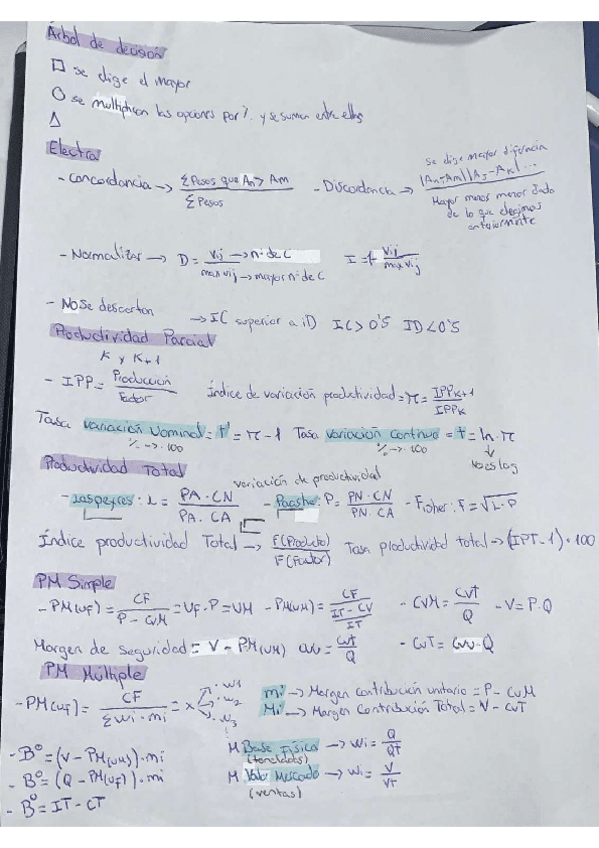 Árbol de decisión
□ se elige el mayor
○ se multiplican las opciones por % y se suman entre ellas
△
Electra
- Concordancia → ΣPesos que An > Am / ΣPesos
- Discordancia → Se elige mayor diferencia |An-Am||AJ-AK|... / Mayor menos menor dado de lo que elegimos anteriormente
- Normalizar → D = Vij → nº de C / max vij → mayor nº de C
I = 1 - Vij / max vij
- No se descartan → IC superior a ID IC > 0'5 ID < 0'5
Productividad Parcial
K y K+1
- IPP = Producción / Factor
Índice de variación productividad = π = IPPK+1 / IPPK
Tasa variación Nominal = t' = π - 1 Tasa variación continuo = t = ln π
% → ·100 % → ·100 No es log
Productividad Total
variación de productividad
- Laspeyres: L = PA · CN / PA · CA - Paashe: P = PN · CN / PN · CA - Fisher: F = √L · P
Índice productividad Total → F(Producto) / F(Factor) Tasa productividad total → (IPT - 1) · 100
PM Simple
- PM(UF) = CF / P - CVM = UF · P = UM - PM(UM) = CF / (IT - CV / IT) - CVM = CVT / Q - V = P · Q
Margen de Seguridad = V - PM(UM) CVU = CVT / Q - CVT = CVU · Q
PM Múltiple
- PM(UF) = CF / Σwi · mi = x · w1 · w2 · w3
mi → Margen contribución unitario = P - CVM
Mi → Margen Contribución Total = V - CVT
- Bº = (V - PM(UM)) · mi
- Bº = (Q - PM(UF)) · mi
- Bº = IT - CT
M Base Física → wi = Q / QT
(toneladas)
M Valor Mercado → wi = V / VT
(ventas)